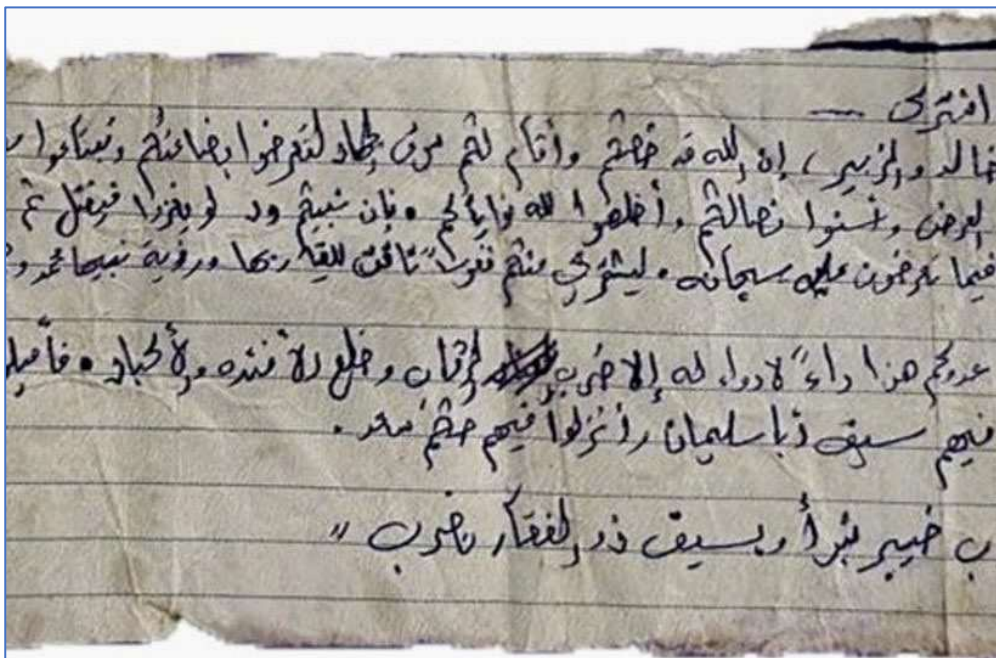 افترى —
خالد والزبير، إن الله قد خصكم وأقام لكم سوق الجهاد لتعرضوا بضاعتكم وتبتاعوا
العرض وسنوا نصالكم وأخلصوا لله نواياكم. فإن نبيكم ود لو يغزوا فيقتل ثم
فيما تعرضون عليه سبحانه. ليشتري منكم نفوساً تاقت للقاء ربها ورؤية نبيها محمد
عدوكم هذا داءً لا دواء له إلا ضرب الرقاب وخلع الأفئده والأكباد.
فيهم سيوف أبا سليمان وأنزلوا فيهم حكم سعد.
خيبر نبدأ وبسيف ذو الفقار نضرب "